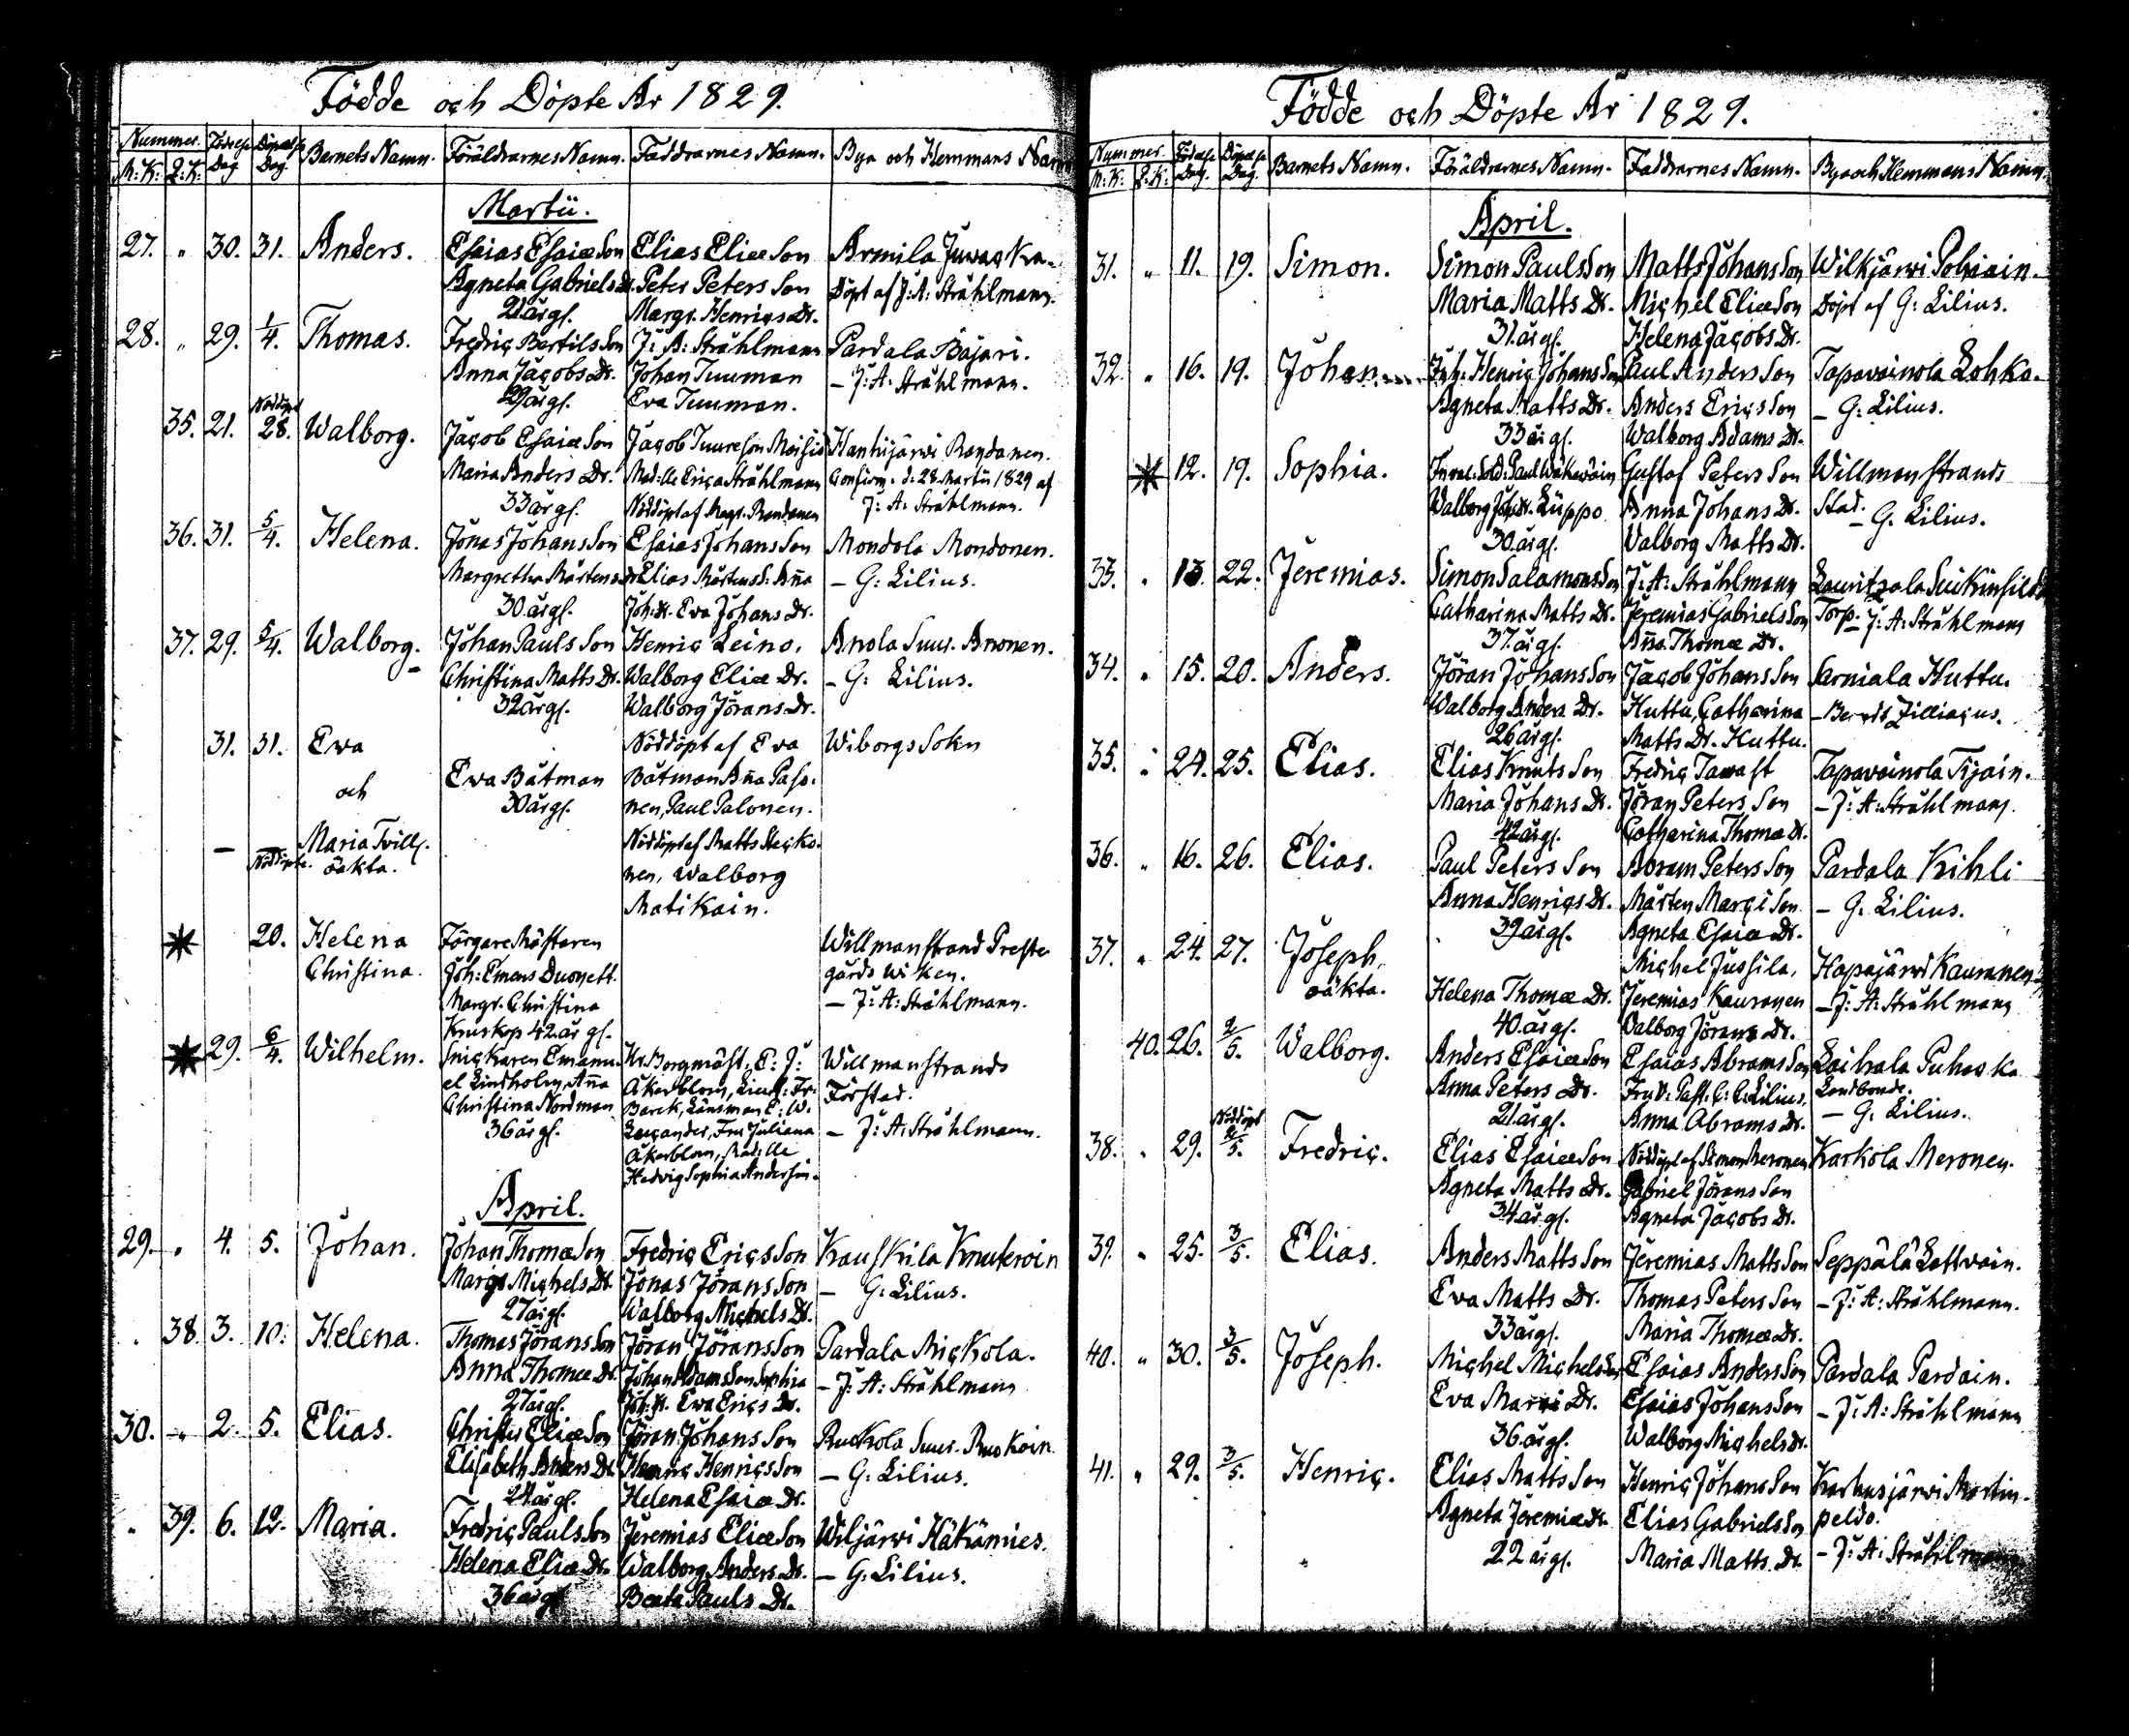 Födde och Döpte År 1829.
Nummer. Födelse Dag Döpelse Dag. Barnets Namn. Föräldrarnes Namn. Faddrarnes Namn. Bya och Hemmans Namn
M:K: Q:K:
Martii.
27. " 30. 31. Anders. Esaias Esaiæ Son Elias Eliæ Son Armila
Agneta Gabriels Dr. Peter Peters Son Döpt af J: A: Stråhlmann.
21 år gl. Margr. Henrics Dr.
28. " 29. 1/4. Thomas. Fredric Bertils Son J: A: Stråhlmann Pardala Bajari.
Anna Jacobs Dr. Johan Tuuman – J: A: Stråhlmann.
29 år gl. Eva Tuuman.
Nöddöpt
35. 21. 28. Walborg. Jacob Esaiæ Son Jacob Tuureson Hanhijärvi Rondanen.
Maria Anders Dr. Mad:lle Erica Stråhlmann Confirm. d: 28 Martii 1829 af
33 år gl. Nöddöpt af Magr. Rondanen J: A: Stråhlmann.
36. 31. 5/4. Helena. Jonas Johans Son Esaias Johans Son Mondola Mondonen.
Margretha Mårtens Dr Elias Mårtens S: Aña – G: Lilius.
30 år gl. Joh: Dr. Eva Johans Dr.
37. 29. 5/4. Walborg. Johan Pauls Son Henric Leino. Anola Suur. Anonen.
Christina Matts Dr. Walborg Eliæ Dr. – G: Lilius.
32 år gl. Walborg Jörans Dr.
31. 31. Eva Nöddöpt af Eva Wiborgs Sokn
och Eva Båtman Båtman Aña Paso-
30 år gl. nen, Paul Palonen.
– Maria Tvill. Nöddöpt af Matts Hecko-
Nöddöpte. oäkta. nen, Walborg
Matikain.
20. Helena Färgare Mästaren Willmanstrand Preste
Christina. Joh: Emans Duonett. gårds wiken.
Margr. Christina – J: A: Stråhlmann.
Kruskop 42 år gl.
29. 6/4. Wilhelm. Snickaren Emanu- Hr. Borgmäst. E: J: Willmanstrands
el Lindholm, Aña Åkerblom, Lieut: Fr: Förstad.
Christina Nordman Barck, Länsman E: W.
36 år gl. Fru Juliana – J: A: Stråhlmann.
Åkerblom, Mad:lle
Hedvig Sophia Andersin.
April.
29. " 4. 5. Johan. Johan Thomæ Son Fredric Erics Son Kauskila Knuteroin
Margr Michels Dr. Jonas Jörans Son – G: Lilius.
27 år gl. Walborg Michels Dr.
38. 3. 10. Helena. Thomas Jörans Son Jöran Jörans Son Pardala Mickola.
Anna Thomæ Dr. Johan Adams Son Sophia – J: A: Stråhlmann
27 år gl. Joh: Dr. Eva Erics Dr.
30. " 2. 5. Elias. Christer Eliæ Son Jöran Johans Son Ruohola Suur. Ruokoin
Elisabeth Anders Dr. Henric Henrics Son – G: Lilius.
24 år gl. Helena Esaiæ Dr.
" 39. 6. 12. Maria. Fredric Pauls Son Jeremias Eliæ Son Wiljärvi Häkämies.
Helena Eliæ Dr. Walborg Anders Dr. – G: Lilius.
36 år gl Beata Pauls Dr.
Födde och Döpte År 1829.
Nummer. Födelse Dag. Döpelse Dag. Barnets Namn. Föräldrarnes Namn. Faddrarnes Namn. Bya och Hemmans Namn.
M:K: Q:K:
April.
31. " 11. 19. Simon. Simon Pauls Son Matts Johans Son Wilkjärvi Pohiain.
Maria Matts Dr. Michel Eliæ Son Döpt af G: Lilius.
31. år gl. Helena Jacobs Dr.
32. " 16. 19. Johan Joh: Henric Johans Son Paul Anders Son Tapavainola Lohko.
Agneta Matts Dr. Anders Erics Son – G: Lilius.
33 år gl. Walborg Adams Dr.
12. 19. Sophia. Inval: Sold: Paul Wäkeväin Gustaf Peters Son Willmanstrands
Walborg Joh: Dr. Lüppo Anna Johans Dr. Stad.
30 år gl. Walborg Matts Dr. – G. Lilius.
33. " 13. 22. Jeremias. Simon Salamons Son J: A: Stråhlmann Lauritzala
Catharina Matts Dr. Jeremias Gabriels Son Torp. – J: A: Stråhlmann
37. år gl. Aña Thomæ Dr.
34. " 15. 20. Anders. Jöran Johans Son Jacob Johans Son Sarniala Huttu.
Walborg Anders Dr. Huttu, Catharina – Berndt Zilliacus.
26 år gl. Matts Dr. Huttu.
35. " 24. 25. Elias. Elias Knuts Son Fredric Tavast Tapavainola Tijain.
Maria Johans Dr. Jöran Peters Son – J: A: Stråhlmann.
42 år gl. Catharina Thomæ Dr.
36. " 16. 26. Elias. Paul Peters Son Abram Peters Son Pardala Kihli
Anna Henrics Dr. Mårten Marci Son – G. Lilius.
39 år gl. Agneta Esaiæ Dr.
37. " 24. 27. Joseph, Michel Jussila, Hapajärvi Kauranen.
oäkta. Helena Thomæ Dr. Jeremias Kauranen – J: A: Stråhlmann
40. år gl. Walborg Jörans Dr.
40. 26. 2/5. Walborg. Anders Esaiæ Son Esaias Abrams Son Laihala Puhakka
Anna Peters Dr. Fru V: Past: C: C: Lilius. Landbonde.
21 år gl. Anna Abrams Dr. – G: Lilius.
Nöddöpt
38. " 29. 2/5. Fredric. Elias Esaiæ Son Nöddöpt af Simon Meronen Karkola Meronen.
Agneta Matts Dr. Gabriel Jörans Son
34 år gl. Agneta Jacobs Dr.
39. " 25. 3/5. Elias. Anders Matts Son Jeremias Matts Son Seppälä Lattvain.
Eva Matts Dr. Thomas Peters Son – J: A: Stråhlmann.
33 år gl. Maria Thomæ Dr.
40. " 30. 3/5. Joseph. Michel Michels Son Esaias Anders Son Pardala Pardain.
Eva Marci Dr. Esaias Johans Son – J: A: Stråhlmann
36 år gl. Walborg Michels Dr.
41. " 29. 3/5. Henric. Elias Matts Son Henric Johans Son Karhusjärvi Martin-
Agneta Jeremiæ Dr. Elias Gabriels Son peldo.
22 år gl. Maria Matts Dr. – J: A: Stråhlmann